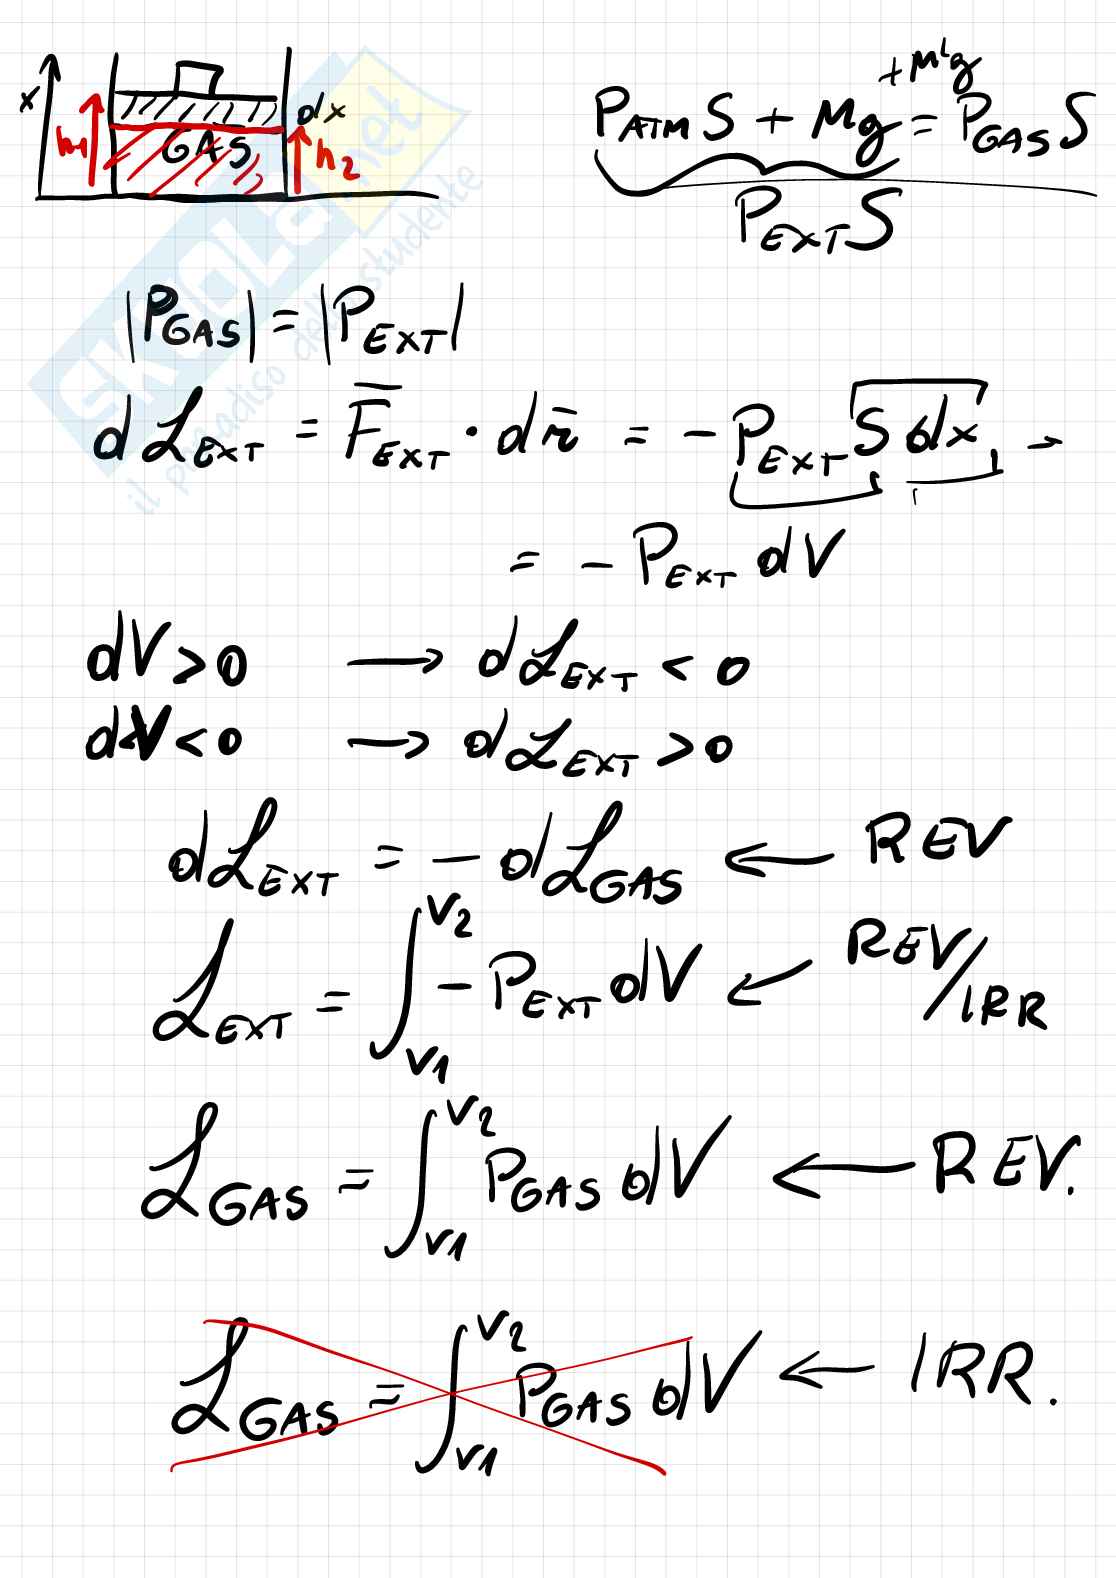 x h1 GAS dx h2
P_ATM S + Mg + M'g = P_GAS S
P_EXT S
|P_GAS| = |P_EXT|
dL_EXT = F̄_EXT · dr̄ = - P_EXT S dx →
= - P_EXT dV
dV > 0 → dL_EXT < 0
dV < 0 → dL_EXT > 0
dL_EXT = - dL_GAS ← REV
L_EXT = ∫_V1^V2 - P_EXT dV ← REV/IRR
L_GAS = ∫_V1^V2 P_GAS dV ← REV.
L_GAS = ∫_V1^V2 P_GAS dV ← IRR.
SKUOLA.net
il paradiso dello studente